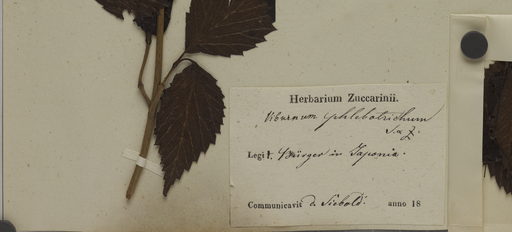 Herbarium Zuccarinii.
Viburnum phlebotrichum
S. & Z.
Legit. Bürger in Japonia.
Communicavit d. Siebold. anno 18